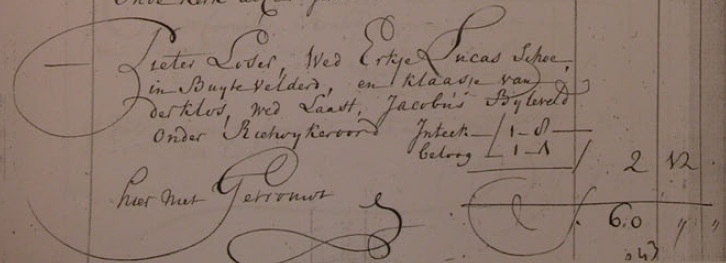 Pieter Loser, Wed Erkje Lucas Schoe,
in Buytevelderd, en Klaasje van
derklos, wed Laast, Jacobus Byleveld
Onder Rietwykeroord Inteek — 1 - 8 —
betoog 1 - 8 / 2 12
hier met Getrouwt
6.0 " "